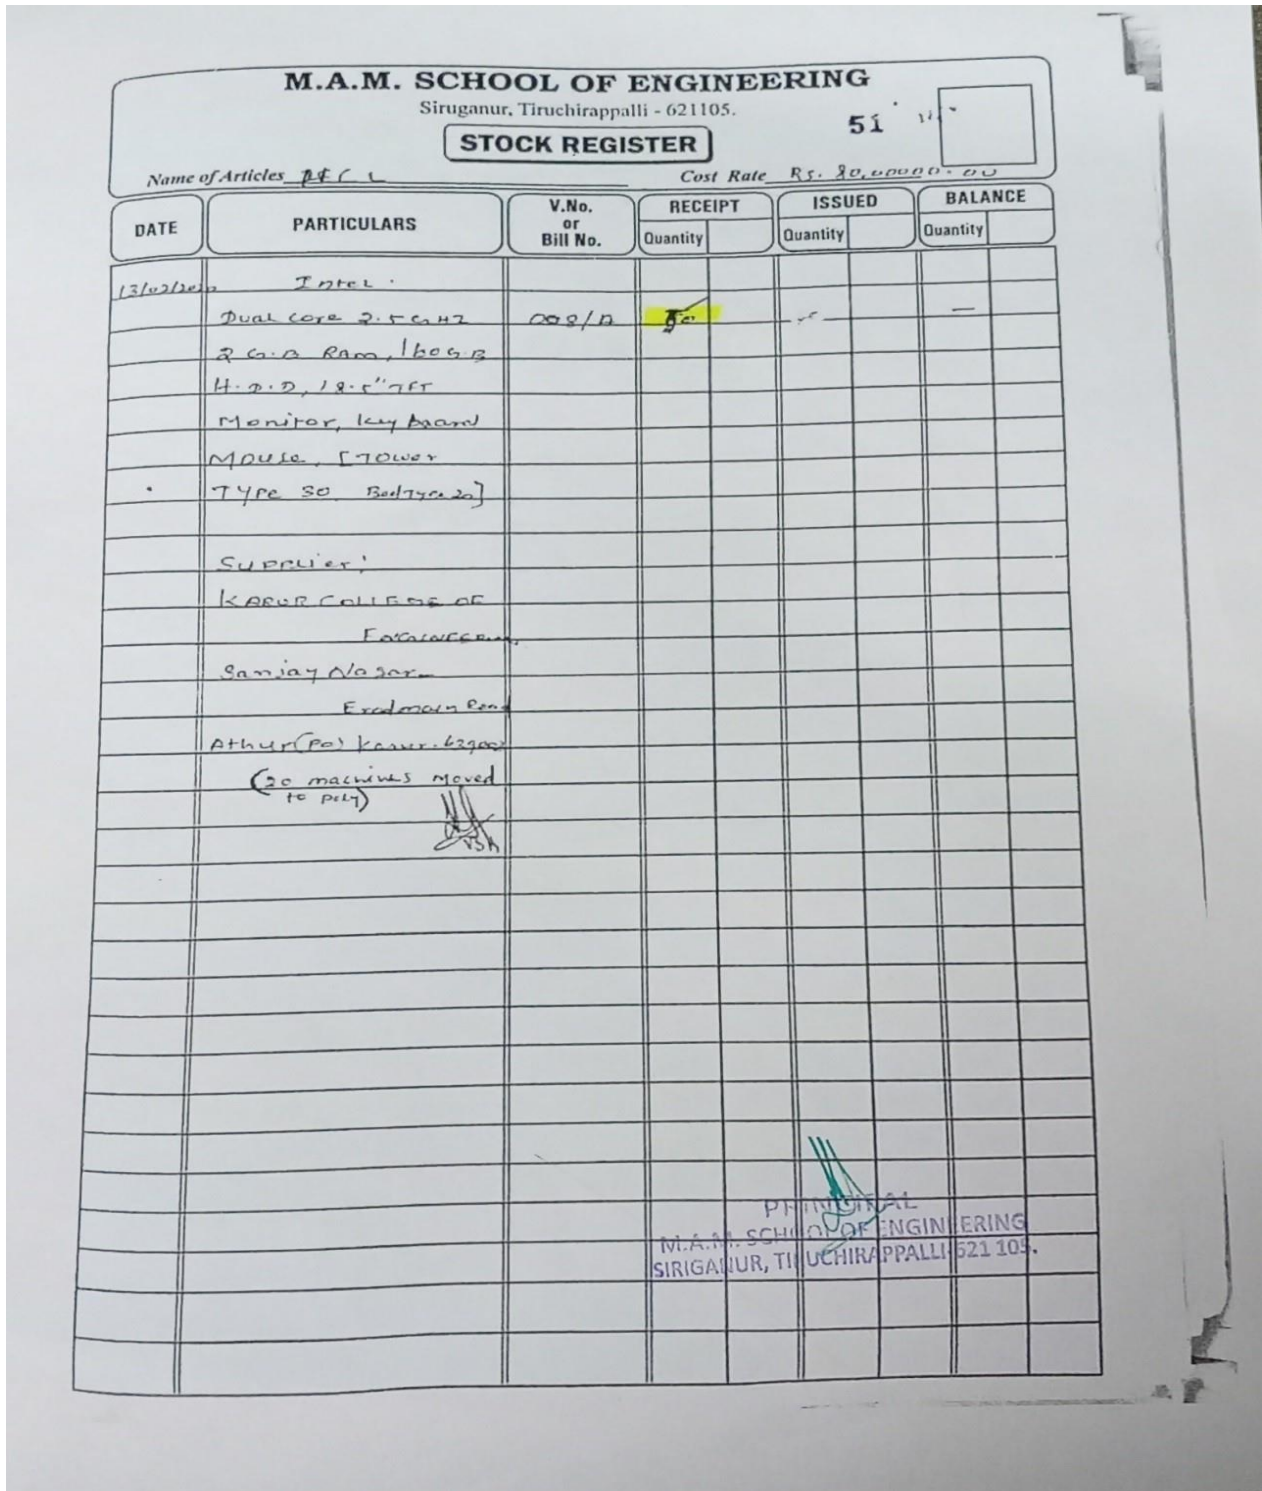 M.A.M. SCHOOL OF ENGINEERING
Siruganur, Tiruchirappalli - 621105.
51
STOCK REGISTER
Name of Articles
Cost Rate Rs.
DATE PARTICULARS V.No. or Bill No. RECEIPT ISSUED BALANCE
Quantity Quantity Quantity
Intel.
Dual Core 2.5 GHZ 008/A 50 —
2 G.B RAM, 160 G.B
H.D.D, 18.5" TFT
Monitor, Keyboard
Mouse, [Tower
Type 30
Supplier:
KARUR COLLEGE OF
ENGINEERING,
Sanjay Nagar
Athur (Po) Karur.
(20 machines moved
to poly)
PRINCIPAL
M.A.M. SCHOOL OF ENGINEERING
SIRIGANUR, TIRUCHIRAPPALLI-621 105.